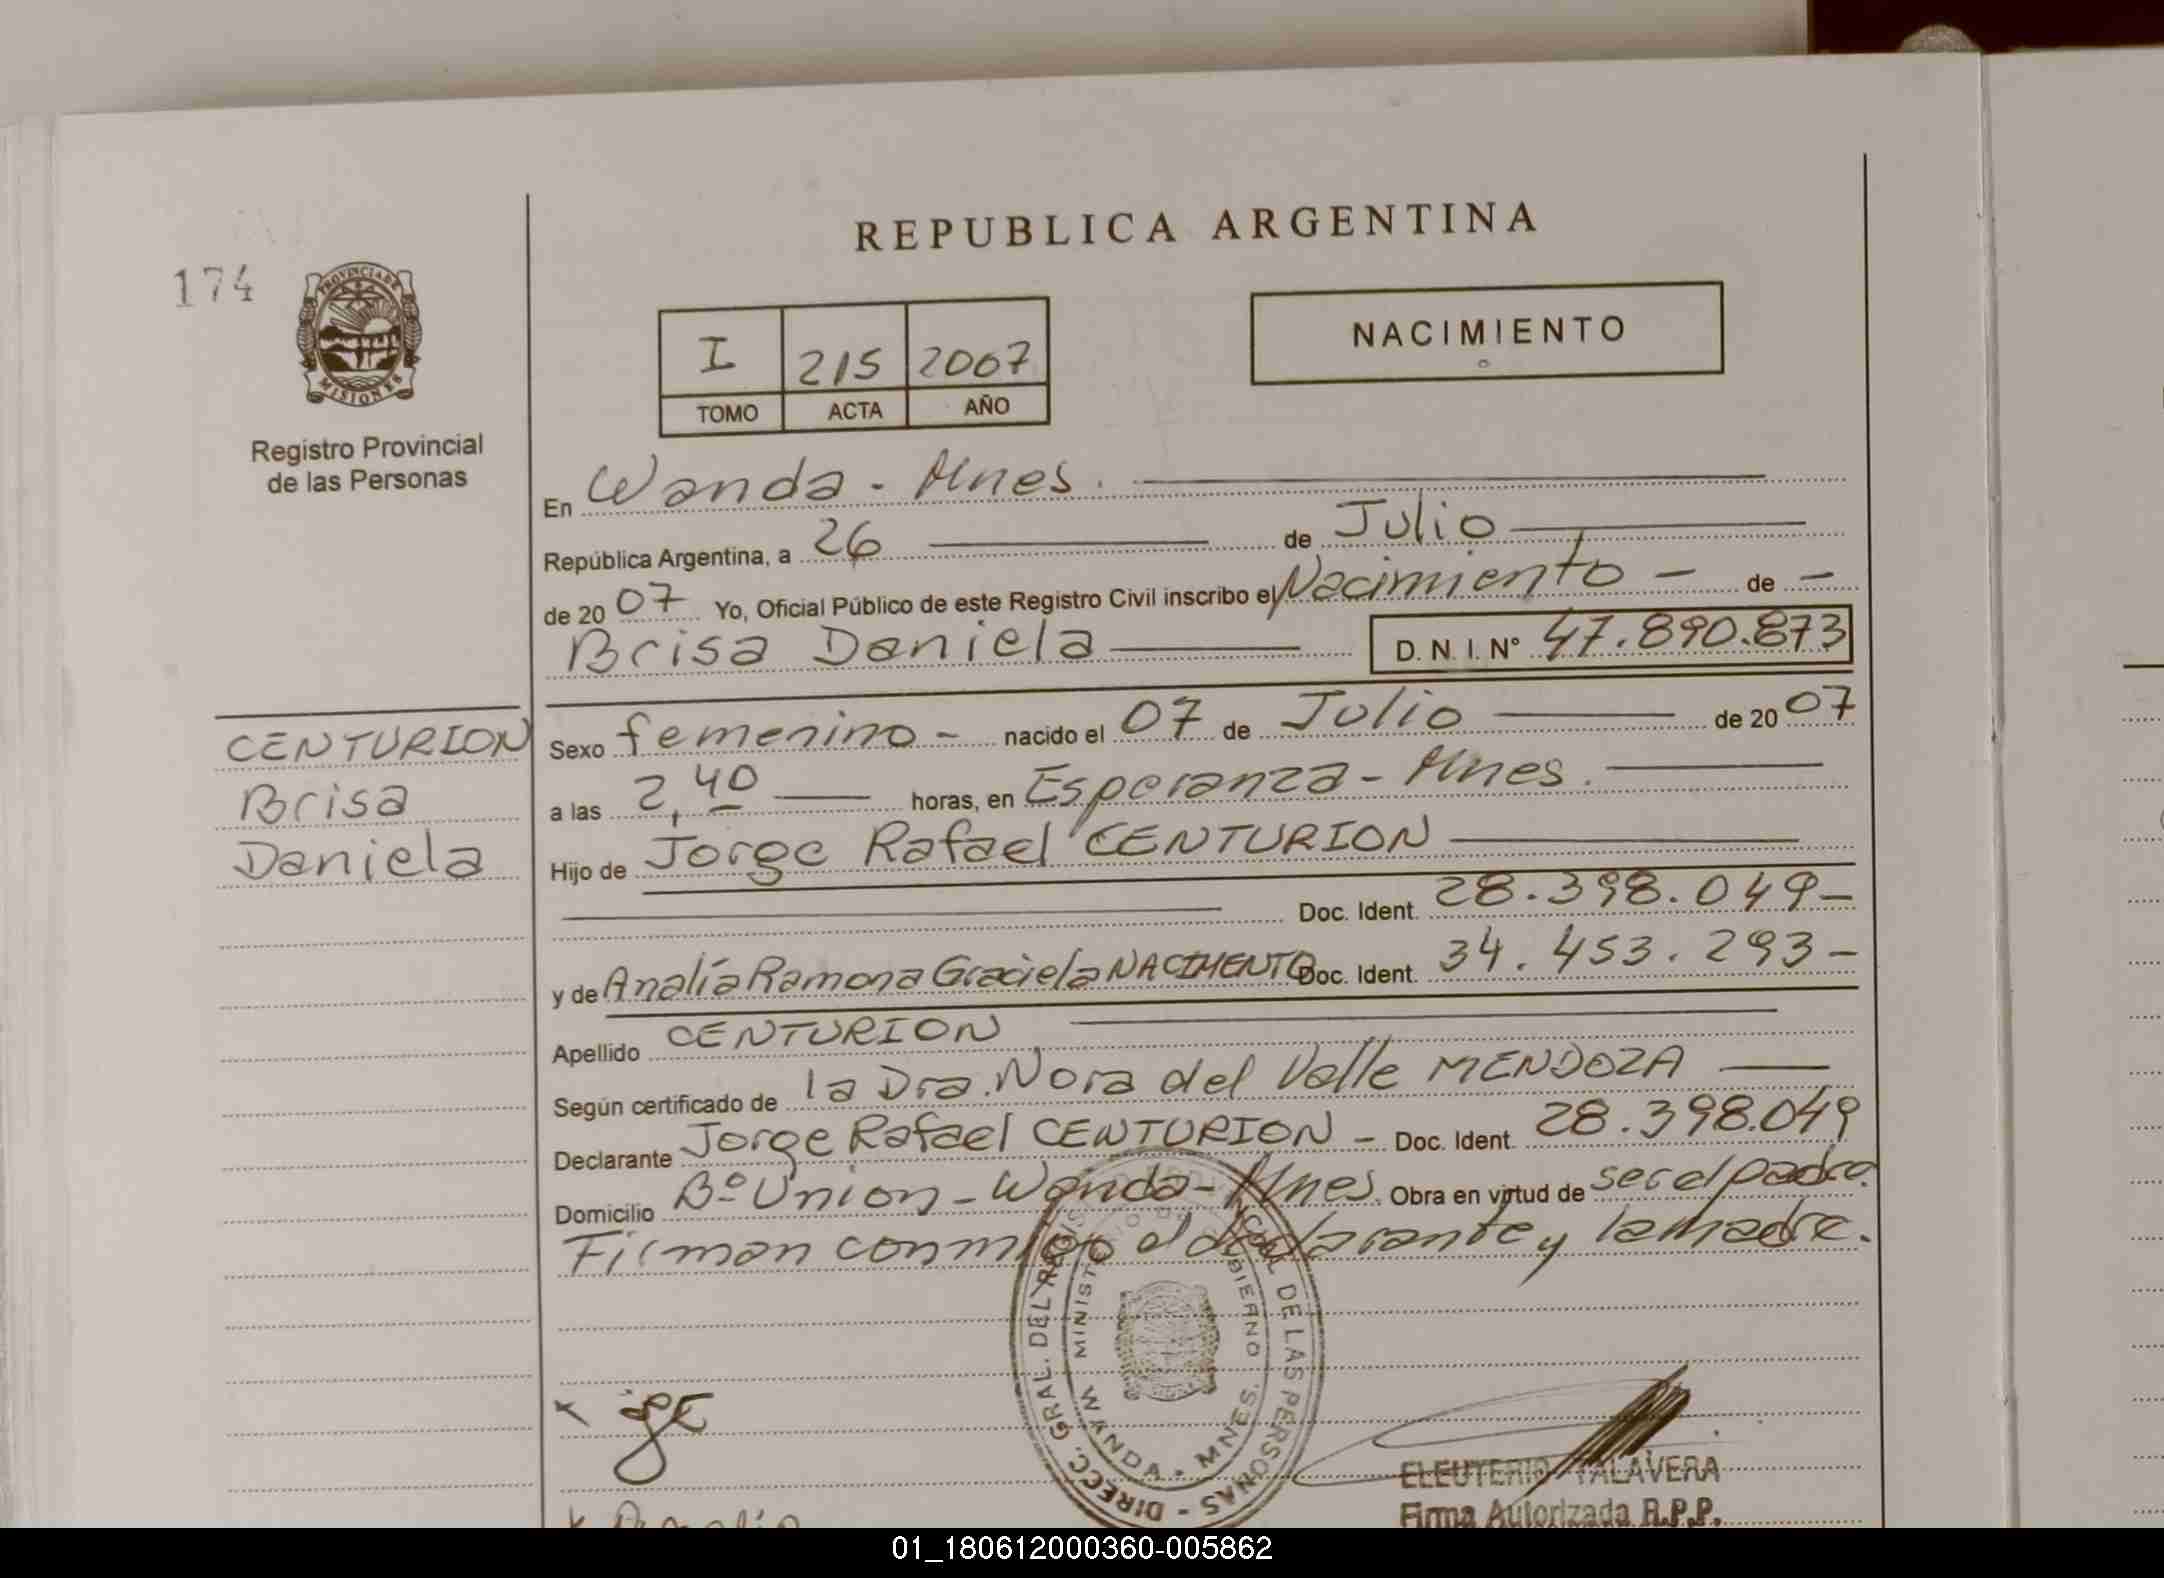 REPUBLICA ARGENTINA
174
PROVINCIA DE
MISIONES
Registro Provincial
de las Personas
I 215 2007
TOMO ACTA AÑO
NACIMIENTO
En Wanda - Mnes.
República Argentina, a 26 de Julio
de 2007 Yo, Oficial Público de este Registro Civil inscribo el Nacimiento - de -
Brisa Daniela D.N.I. Nº 47.890.873
CENTURION
Brisa
Daniela
Sexo femenino - nacido el 07 de Julio de 2007
a las 2,40 horas, en Esperanza - Mnes.
Hijo de Jorge Rafael CENTURION
Doc. Ident. 28.398.049-
y de Analía Ramona Graciela NACIMENTO Doc. Ident. 34.453.293-
Apellido CENTURION
Según certificado de la Dra. Nora del Valle MENDOZA
Declarante Jorge Rafael CENTURION - Doc. Ident. 28.398.049
Domicilio Bº Union - Wanda - Mnes. Obra en virtud de ser el padre.
Firman conmigo el declarante y la madre.
DIRECC. GRAL. DEL REGIS PROVINCIAL DE LAS PERSONAS -
MINISTERIO DE GOBIERNO
WANDA - MNES.
ELEUTERIO TALAVERA
Firma Autorizada R.P.P.
01_180612000360-005862